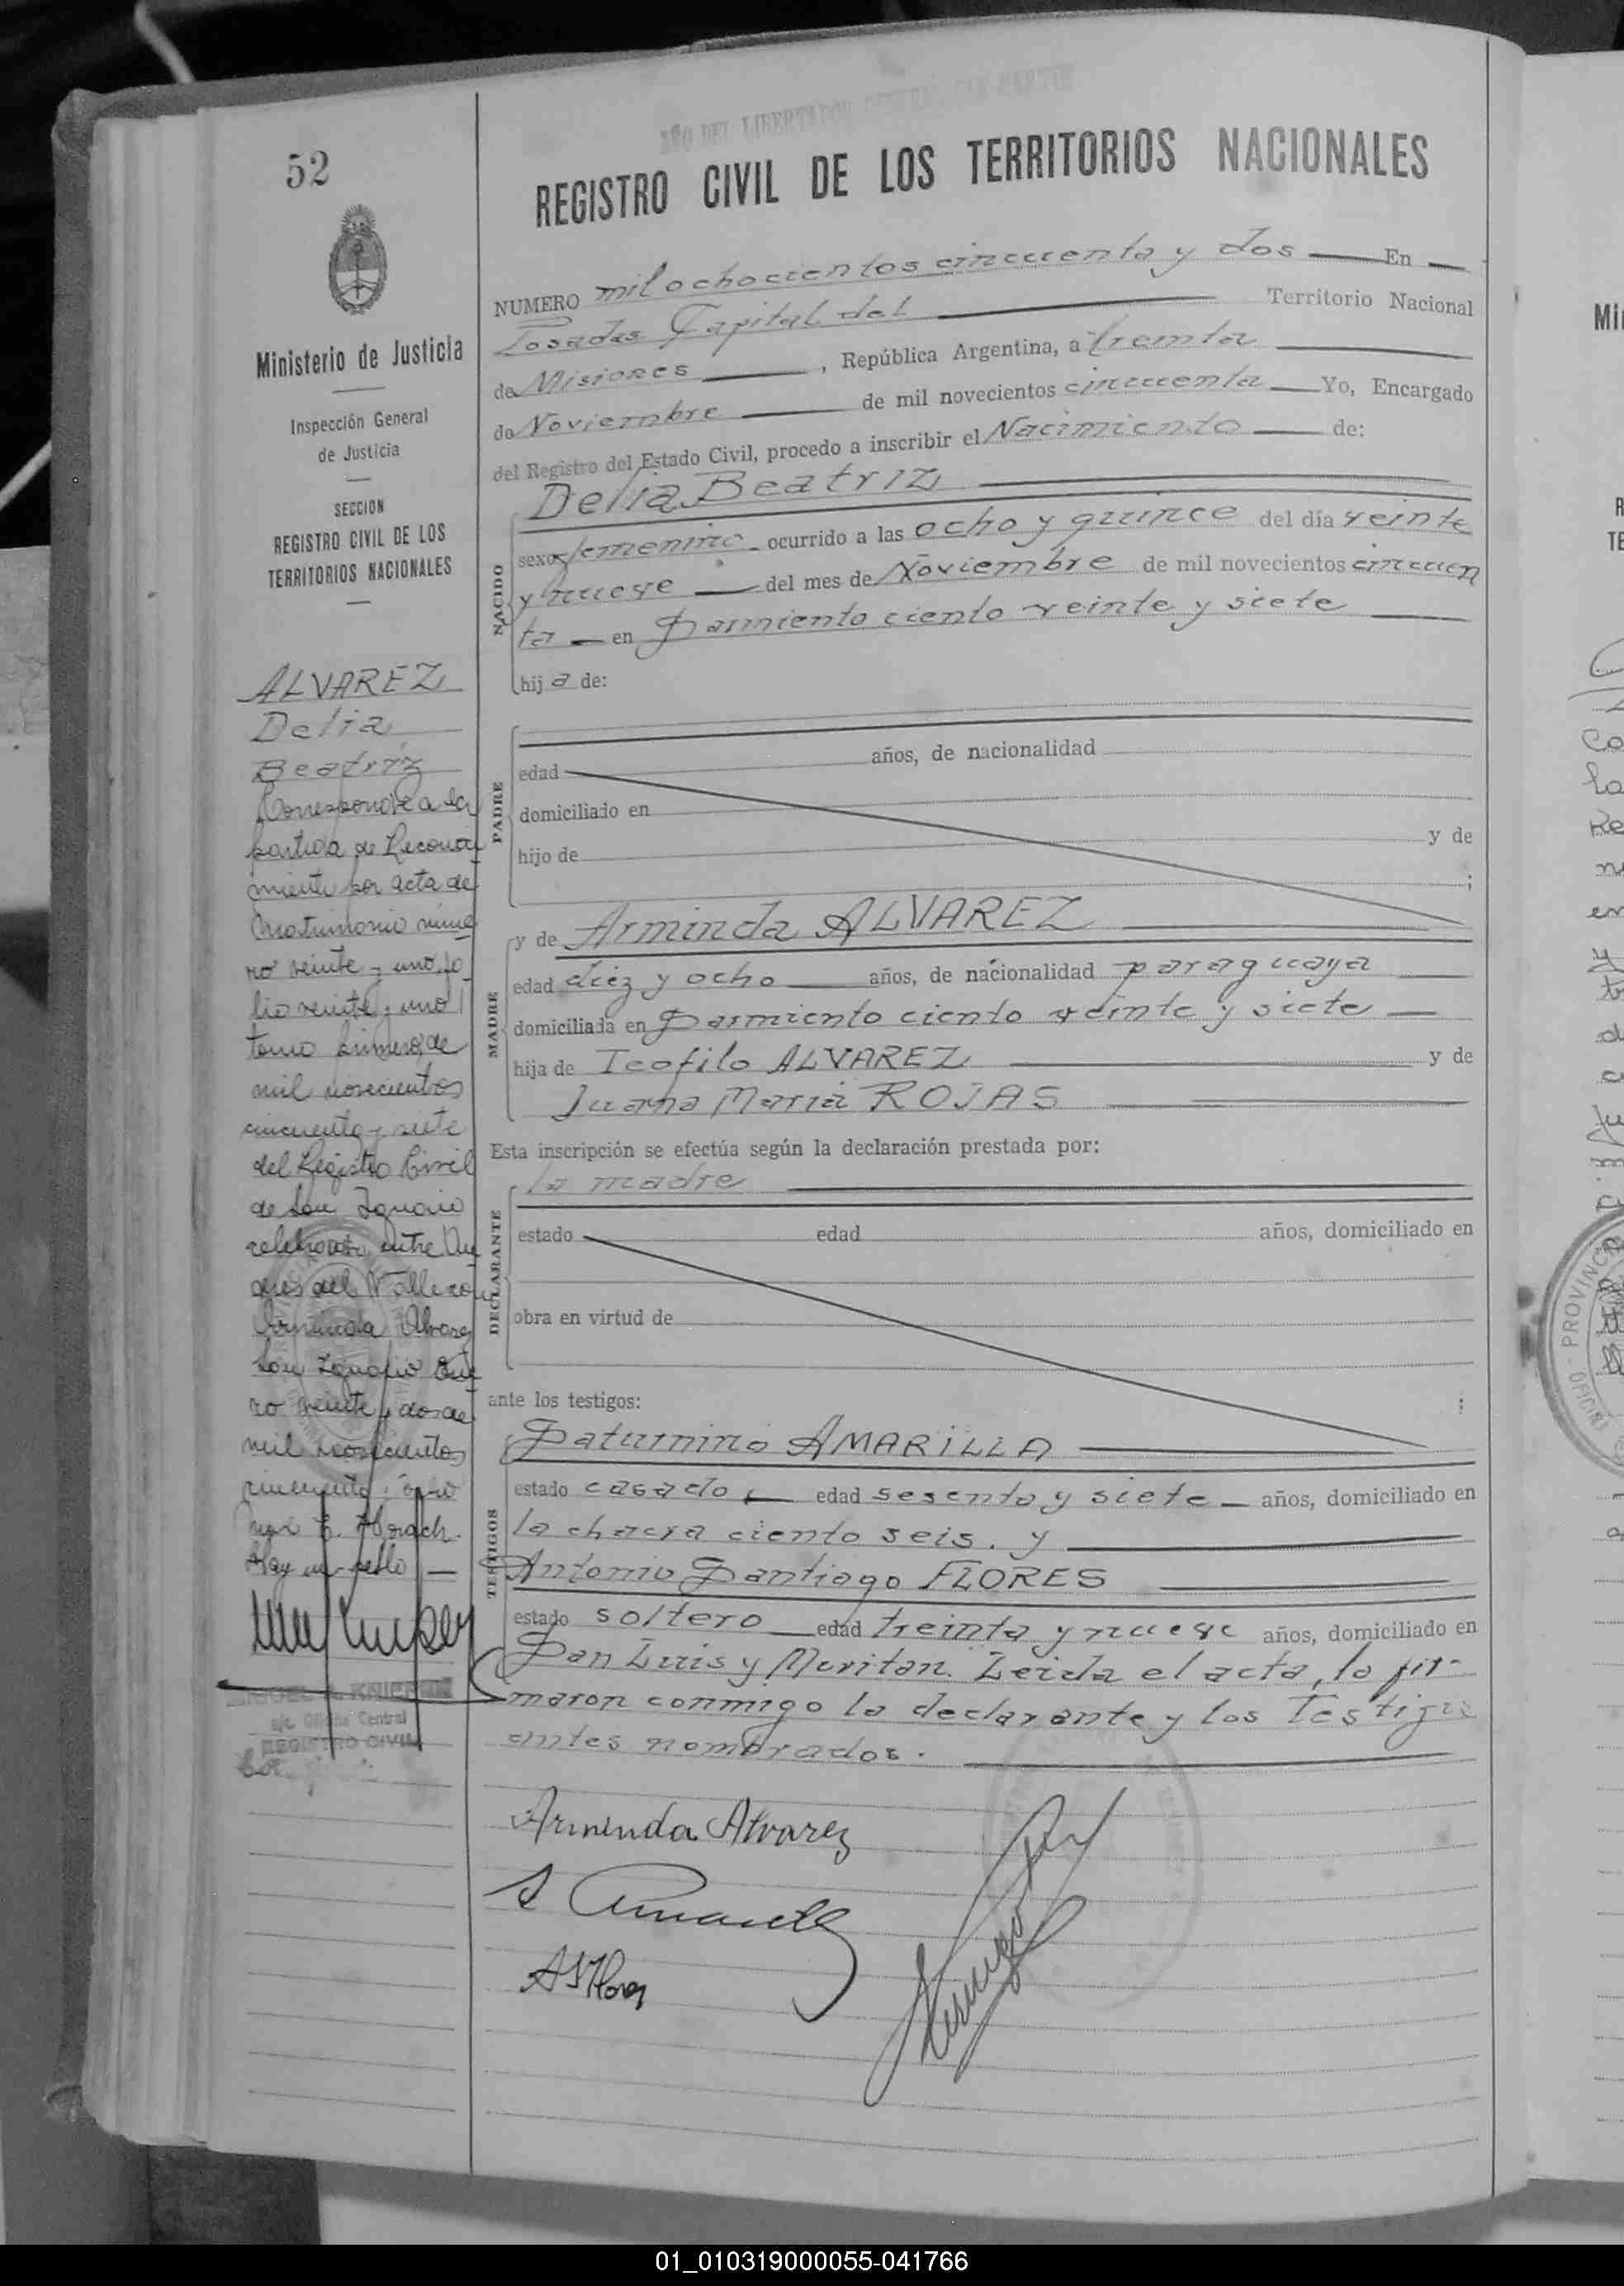 AÑO DEL LIBERTADOR GENERAL SAN MARTIN
52
REGISTRO CIVIL DE LOS TERRITORIOS NACIONALES
Ministerio de Justicia
Inspección General
de Justicia
SECCION
REGISTRO CIVIL DE LOS
TERRITORIOS NACIONALES
ALVAREZ
Delia
Beatríz
Corresponde a la
partida de Reconoci
miento por acta de
Matrimonio núme
ro veinte y uno, fo
lio veinte y uno
tomo primero, de
mil novecientos
cincuenta y siete
del Registro Civil
de San Ignacio
celebrado entre An
dres del Valle con
Arminda Alvarez
San Ignacio Ene
ro veinte y dos de
mil novecientos
cincuenta y ocho
Hay un sello —
Oficina Central
REGISTRO CIVIL
NUMERO mil ochocientos cincuenta y dos — En —
Posadas Capital del — Territorio Nacional
de Misiones —, República Argentina, a treinta —
de Noviembre — de mil novecientos cincuenta — Yo, Encargado
del Registro del Estado Civil, procedo a inscribir el Nacimiento — de:
Delia Beatriz —
NACIDO
sexo femenino - ocurrido a las ocho y quince del día veinte
y nueve — del mes de Noviembre de mil novecientos cincuen
ta — en Sarmiento ciento veinte y siete —
hij a de:
PADRE
edad años, de nacionalidad
domiciliado en
hijo de y de
;
MADRE
y de Arminda ALVAREZ —
edad diez y ocho — años, de nacionalidad paraguaya —
domiciliada en Sarmiento ciento veinte y siete —
hija de Teofilo ALVAREZ — y de
Juana María ROJAS —
Esta inscripción se efectúa según la declaración prestada por:
la madre —
DECLARANTE
estado edad años, domiciliado en
obra en virtud de
ante los testigos: :
TESTIGOS
Saturnino AMARILLA —
estado casado, — edad sesenta y siete — años, domiciliado en
la chacra ciento seis. y —
Antonio Santiago FLORES —
estado soltero — edad treinta y nueve años, domiciliado en
San Luis y Moritan. Leida el acta, la fir-
maron conmigo la declarante y los Testigos
antes nombrados. —
Arminda Alvarez
S Amarilla
A S Flores
PROVINCIA
OFICINA
01_010319000055-041766